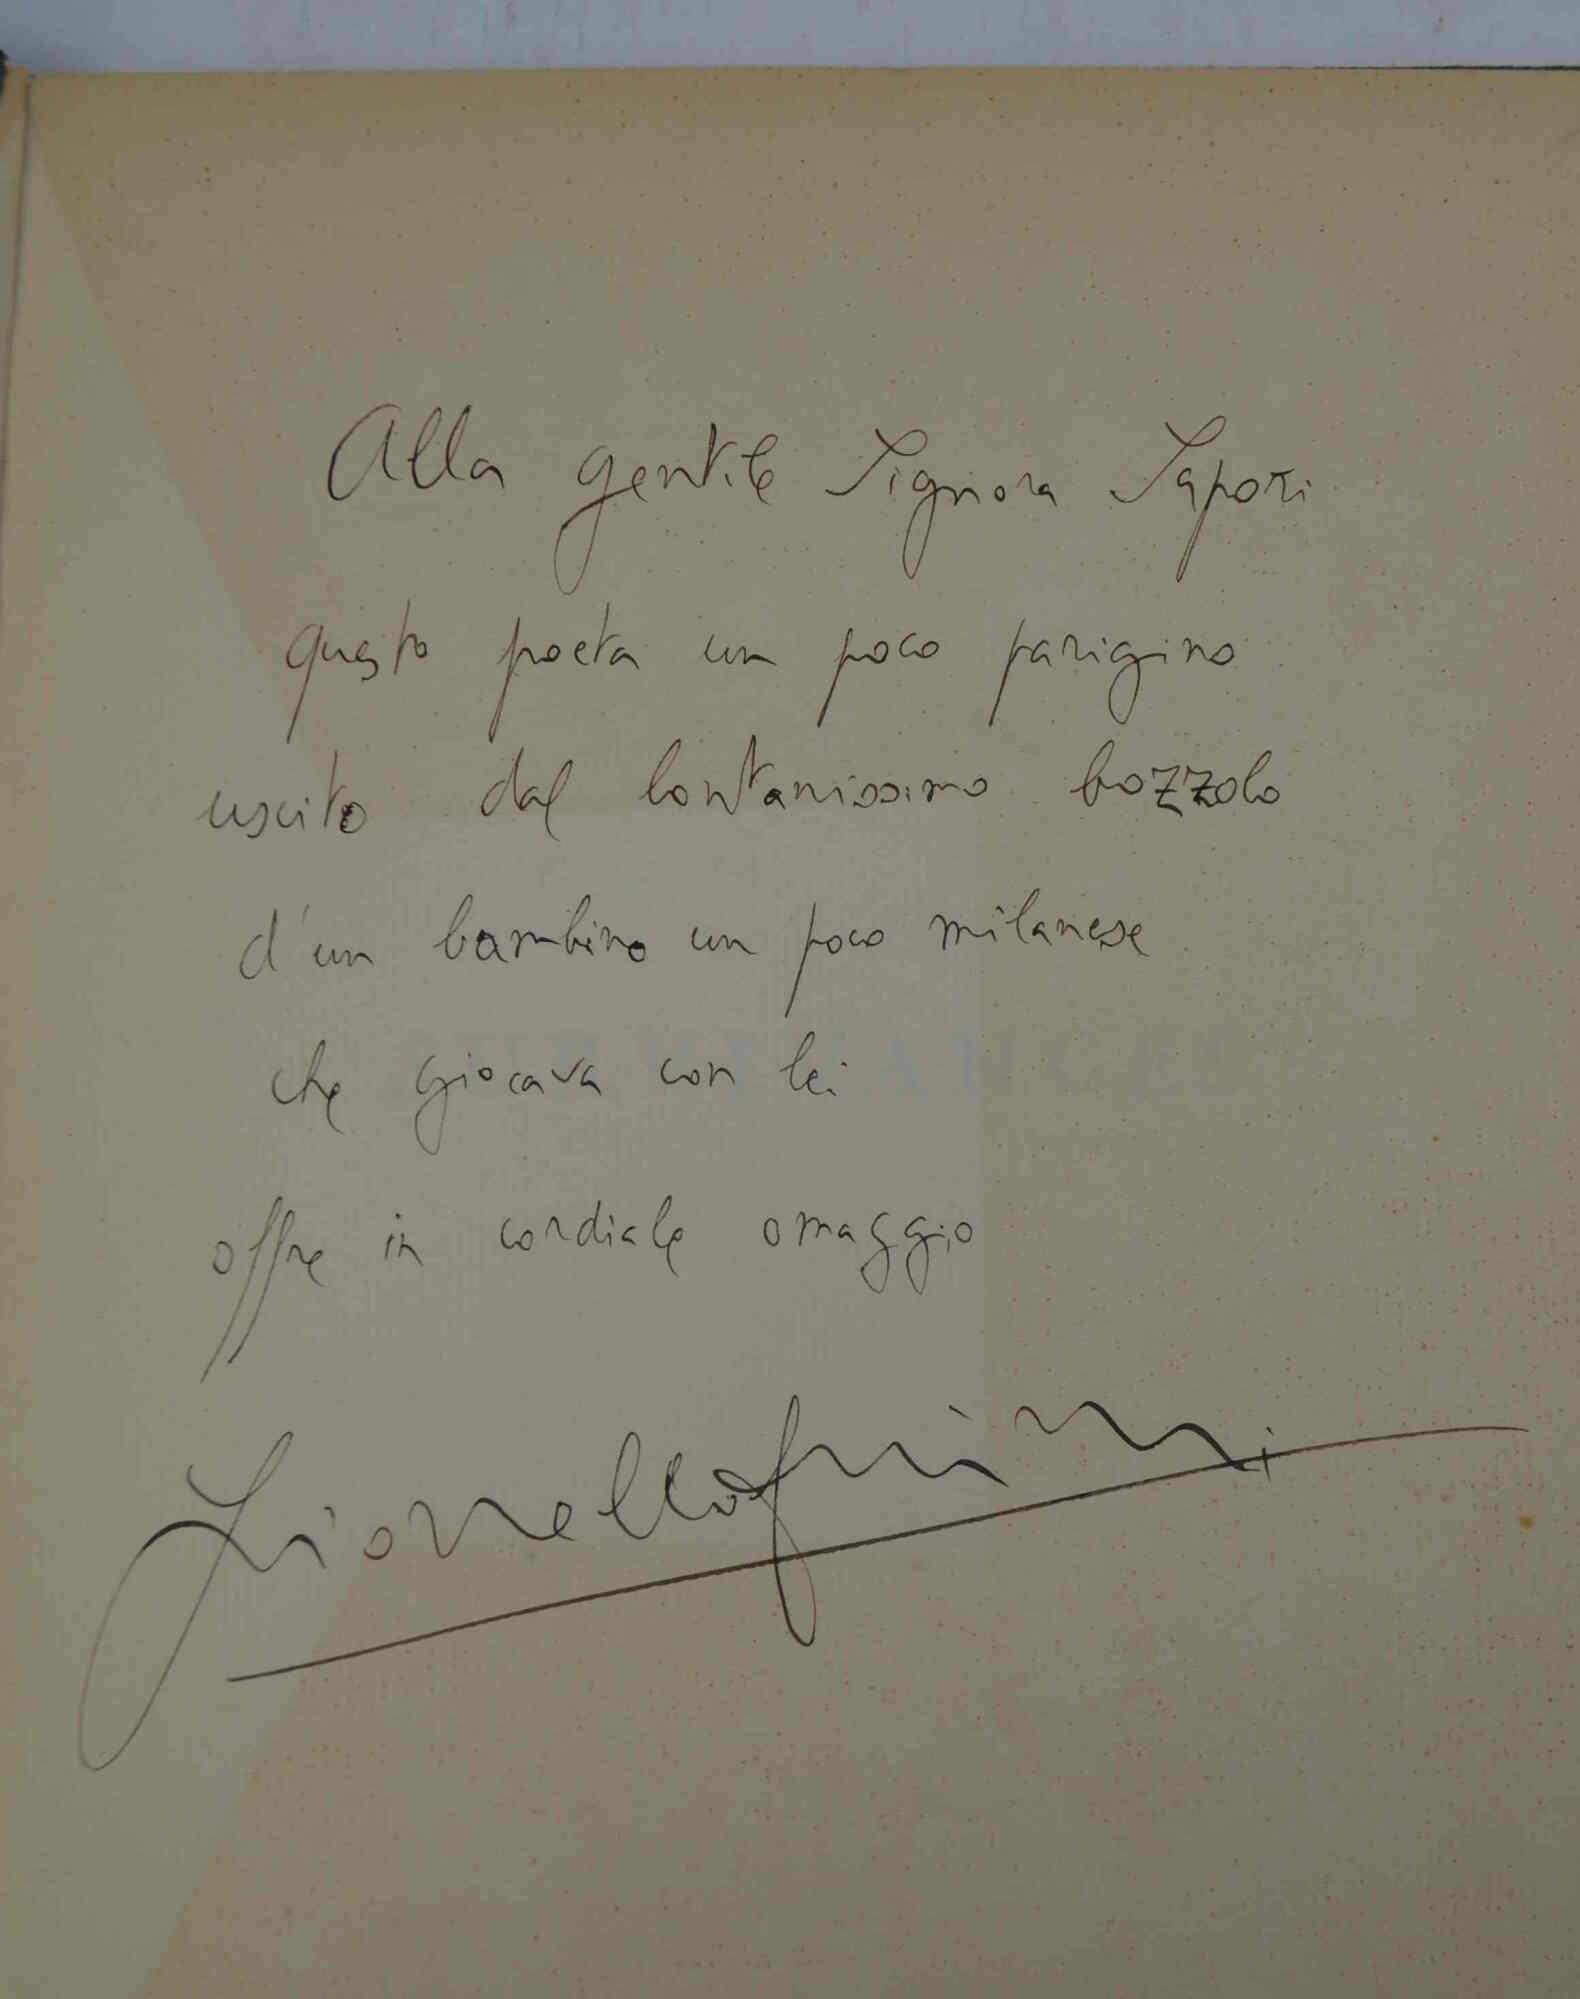 Alla gentile Signora Sapori
questo poeta un poco parigino
uscito dal lontanissimo bozzolo
d'un bambino un poco milanese
che giocava con lei
offre in cordiale omaggio
Lionello Fiumi